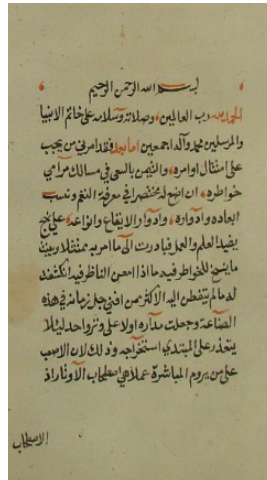 بسم الله الرحمن الرحيم
الحمد لله رب العالمين وصلاته وسلامه على خاتم الانبيا
والمرسلين محمد وآله اجمعين اما بعد فقد امرني من يجب
على امتثال اوامره والتيمن بالسعي في مسالك مرامي
خواطره ان اضع له مختصرا في معرفة النغم ونسب
ابعاده وادواره وادوار الايقاع وانواعه على نهج
يفيد العلم والعمل فبادرت الى ما امر به ممتثلا وبينت
ما يسنح للخواطر فيه ما اذا امعن الناظر فيه انكشف
له ما لم يتفطن اليه الاكثر ممن افنى جل زمانه في هذه
الصناعة وجعلت مداره اولا على وتر واحد ليلا
يتعذر على المبتدي استخراجه وذلك لان الاصعب
على من يروم المباشرة عملا هي اصطحاب الاوتار اذ
الاصطحاب